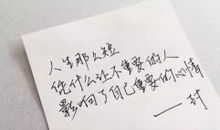 人生那么短
凭什么让不重要的人
影响了自己重要的心情